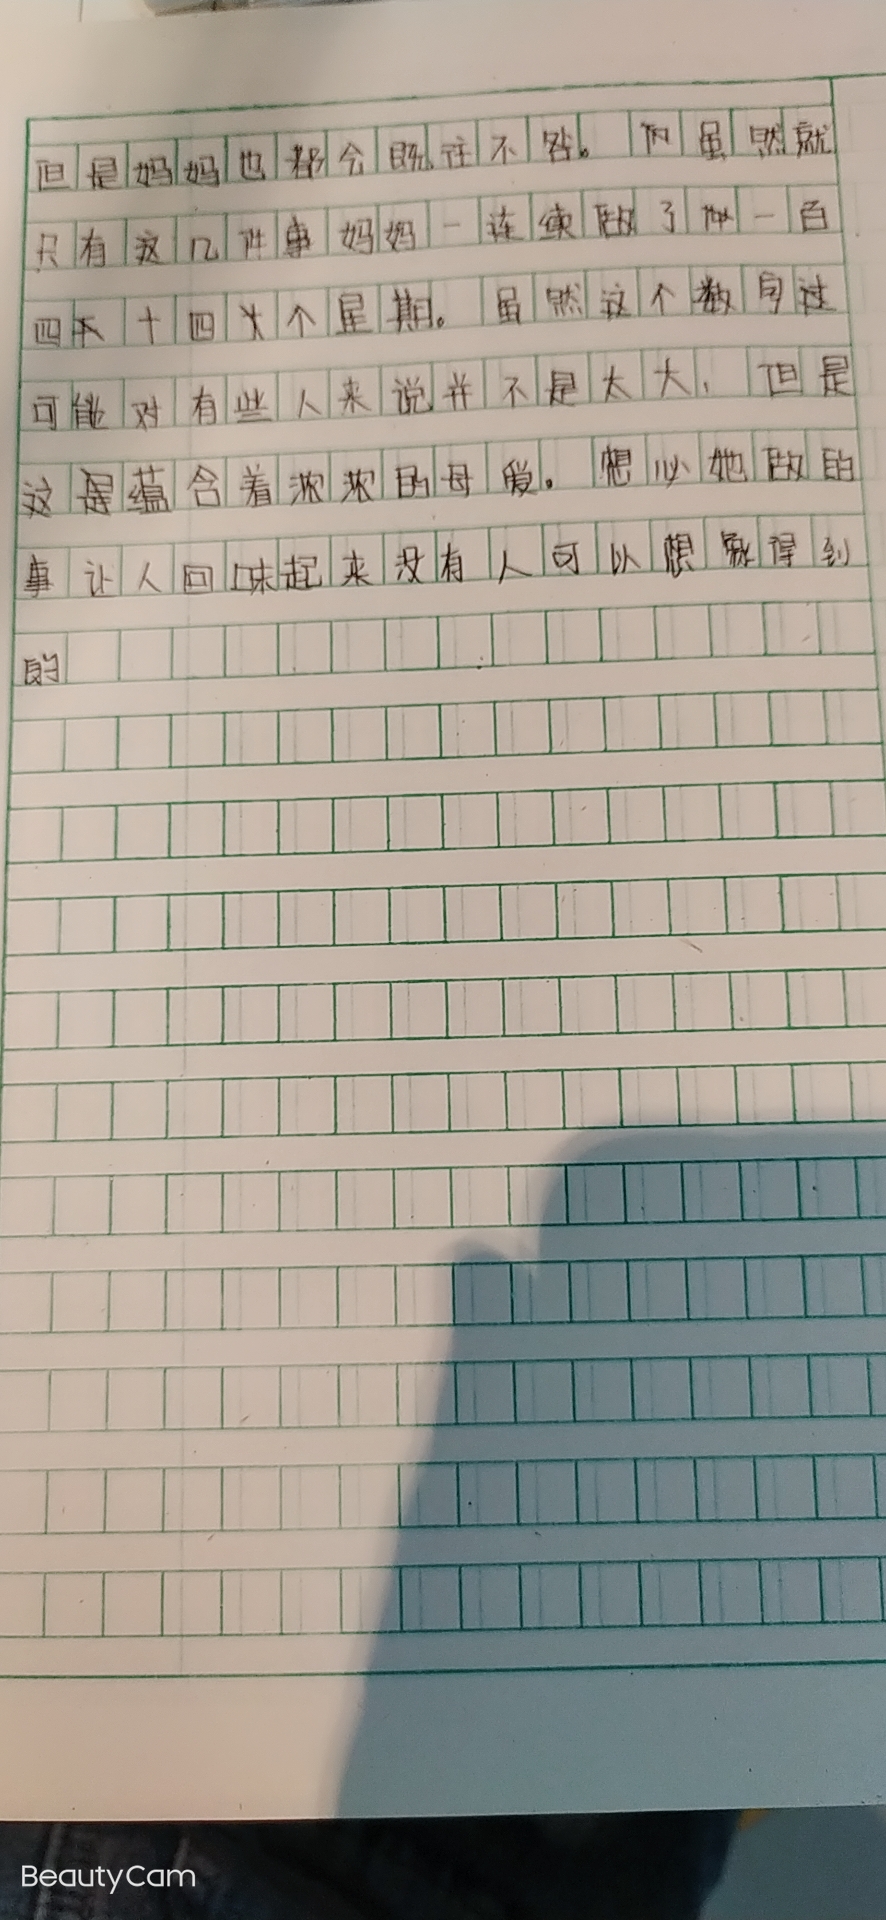 但是妈妈也都会既往不咎。 虽然就
只有这几件事妈妈一连续做了 一百
四 十四 个星期。虽然这个数字过
可能对有些人来说并不是太大，但是
这是蕴含着浓浓的母爱。想必她做的
事让人回味起来没有人可以想象得到
的
BeautyCam